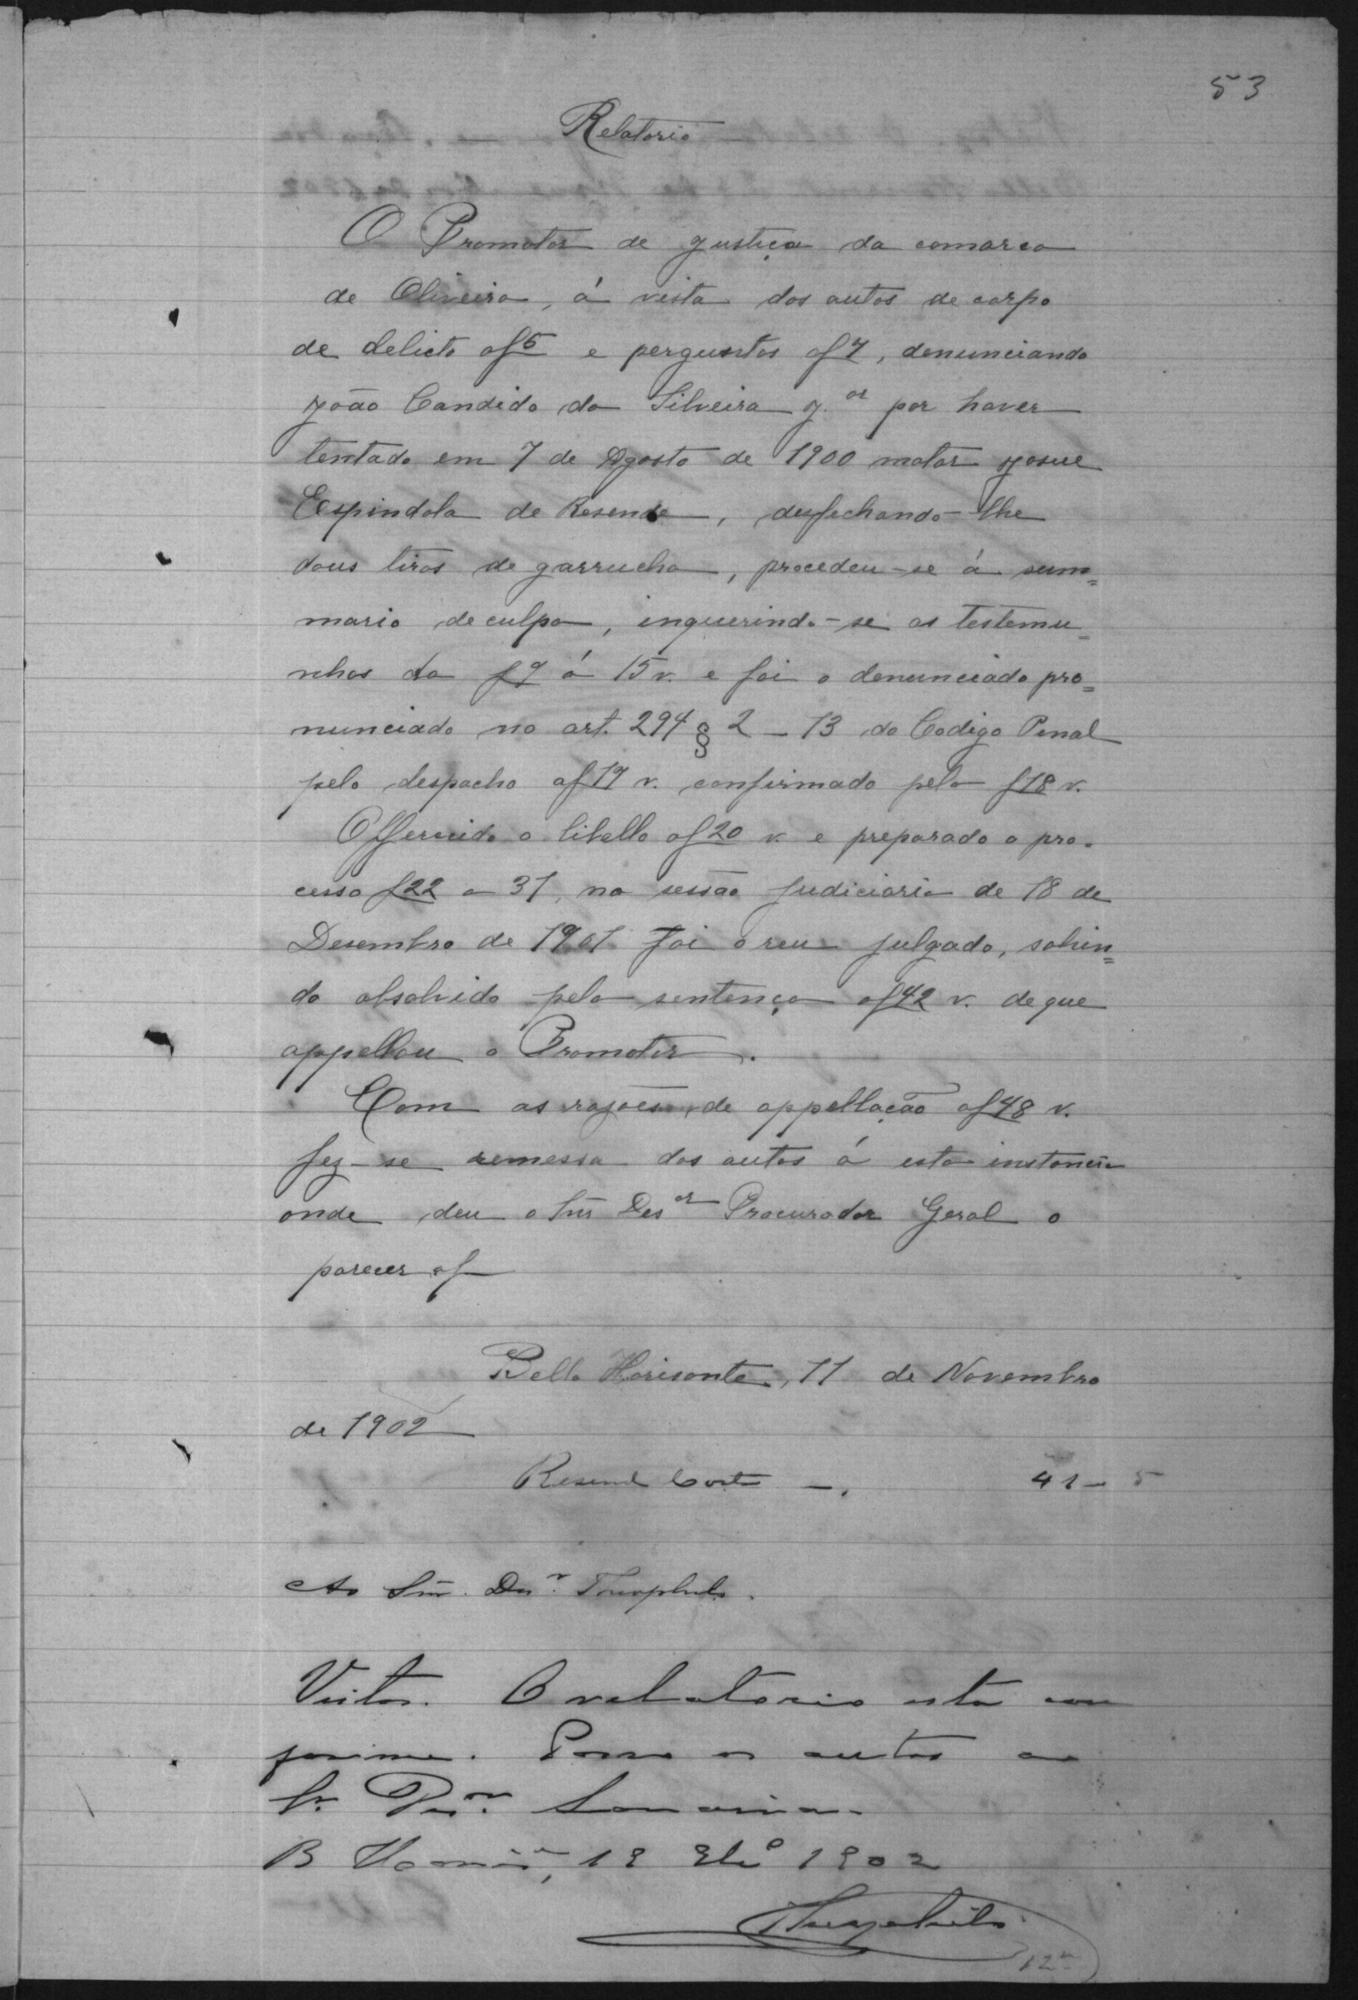 53
Relatorio
O Promotor de Justiça da comarca
de Oliveira, á vista dos autos de corpo
de delicto af 5 e perguntas af 7, denunciando
João Candido da Silveira J.or por haver
tentado em 7 de Agosto de 1900 matar Josue
Espindola de Resende, desfechando-lhe
dous tiros de garrucha, procedeu-se á sum=
mario de culpa, inquerindo-se as testemu=
nhas da f 9 á 15 v. e foi o denunciado pro=
nunciado no art. 294 § 2 - 13 do Codigo Penal
pelo despacho af 17 v. confirmado pelo f 18 v.
Offerecido o libello af 20 v. e preparado o pro-
cesso f 22 a 31, na sessão judiciaria de 18 de
Desembro de 1901 foi o reu julgado, sahin=
do absolvido pela sentença af 42 v. de que
appellou o Promotor.
Com as rasões de appellação af 48 v.
fez-se remessa dos autos á esta instancia
onde deu o Snr Des.or Procurador Geral o
parecer af
Bello Horisonte, 11 de Novembro
de 1902
Resende Costa
41-5
Ao Snr. Des.r Theophilo.
Vistos. O relatorio está con
forme. Passo os autos ao
Sr. Des.or
B 1902
Theophilo
12